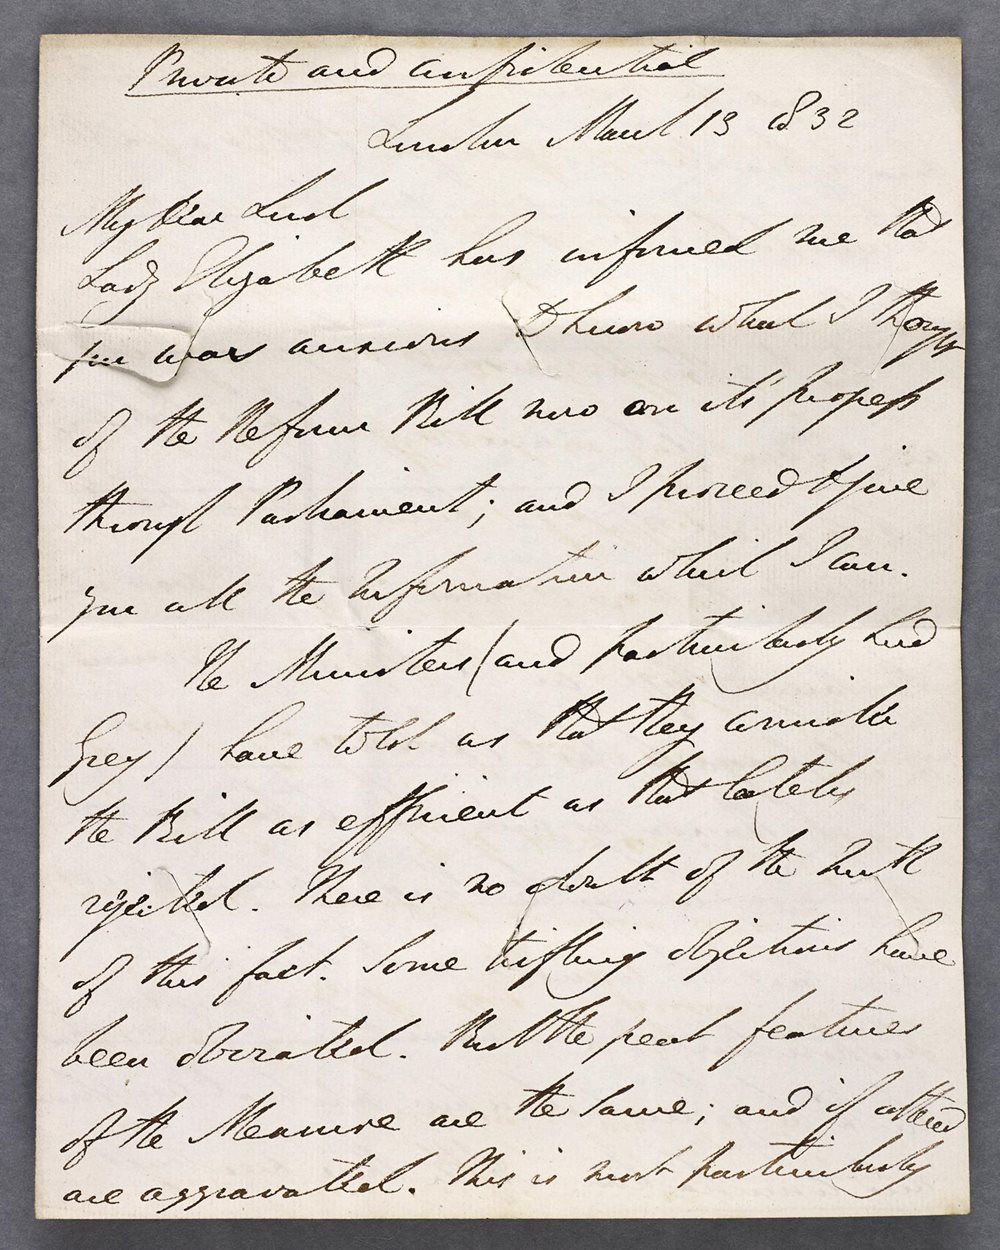 Private and confidential
London March 13 1832
My Dear Lord
Lady Elizabeth has informed me that
you was anxious to know what I thought
of the Reform Bill now on it's progress
through Parliament; and I proceed to give
you all the Information which I can.
The Ministers (and particularly Lord
Grey) have told us that they consider
the Bill as efficient as that lately
rejected. There is no doubt of the truth
of this fact. Some trifling objections have
been obviated. But the great features
of the Measure are the same; and if altered
are aggravated. This is most particularly